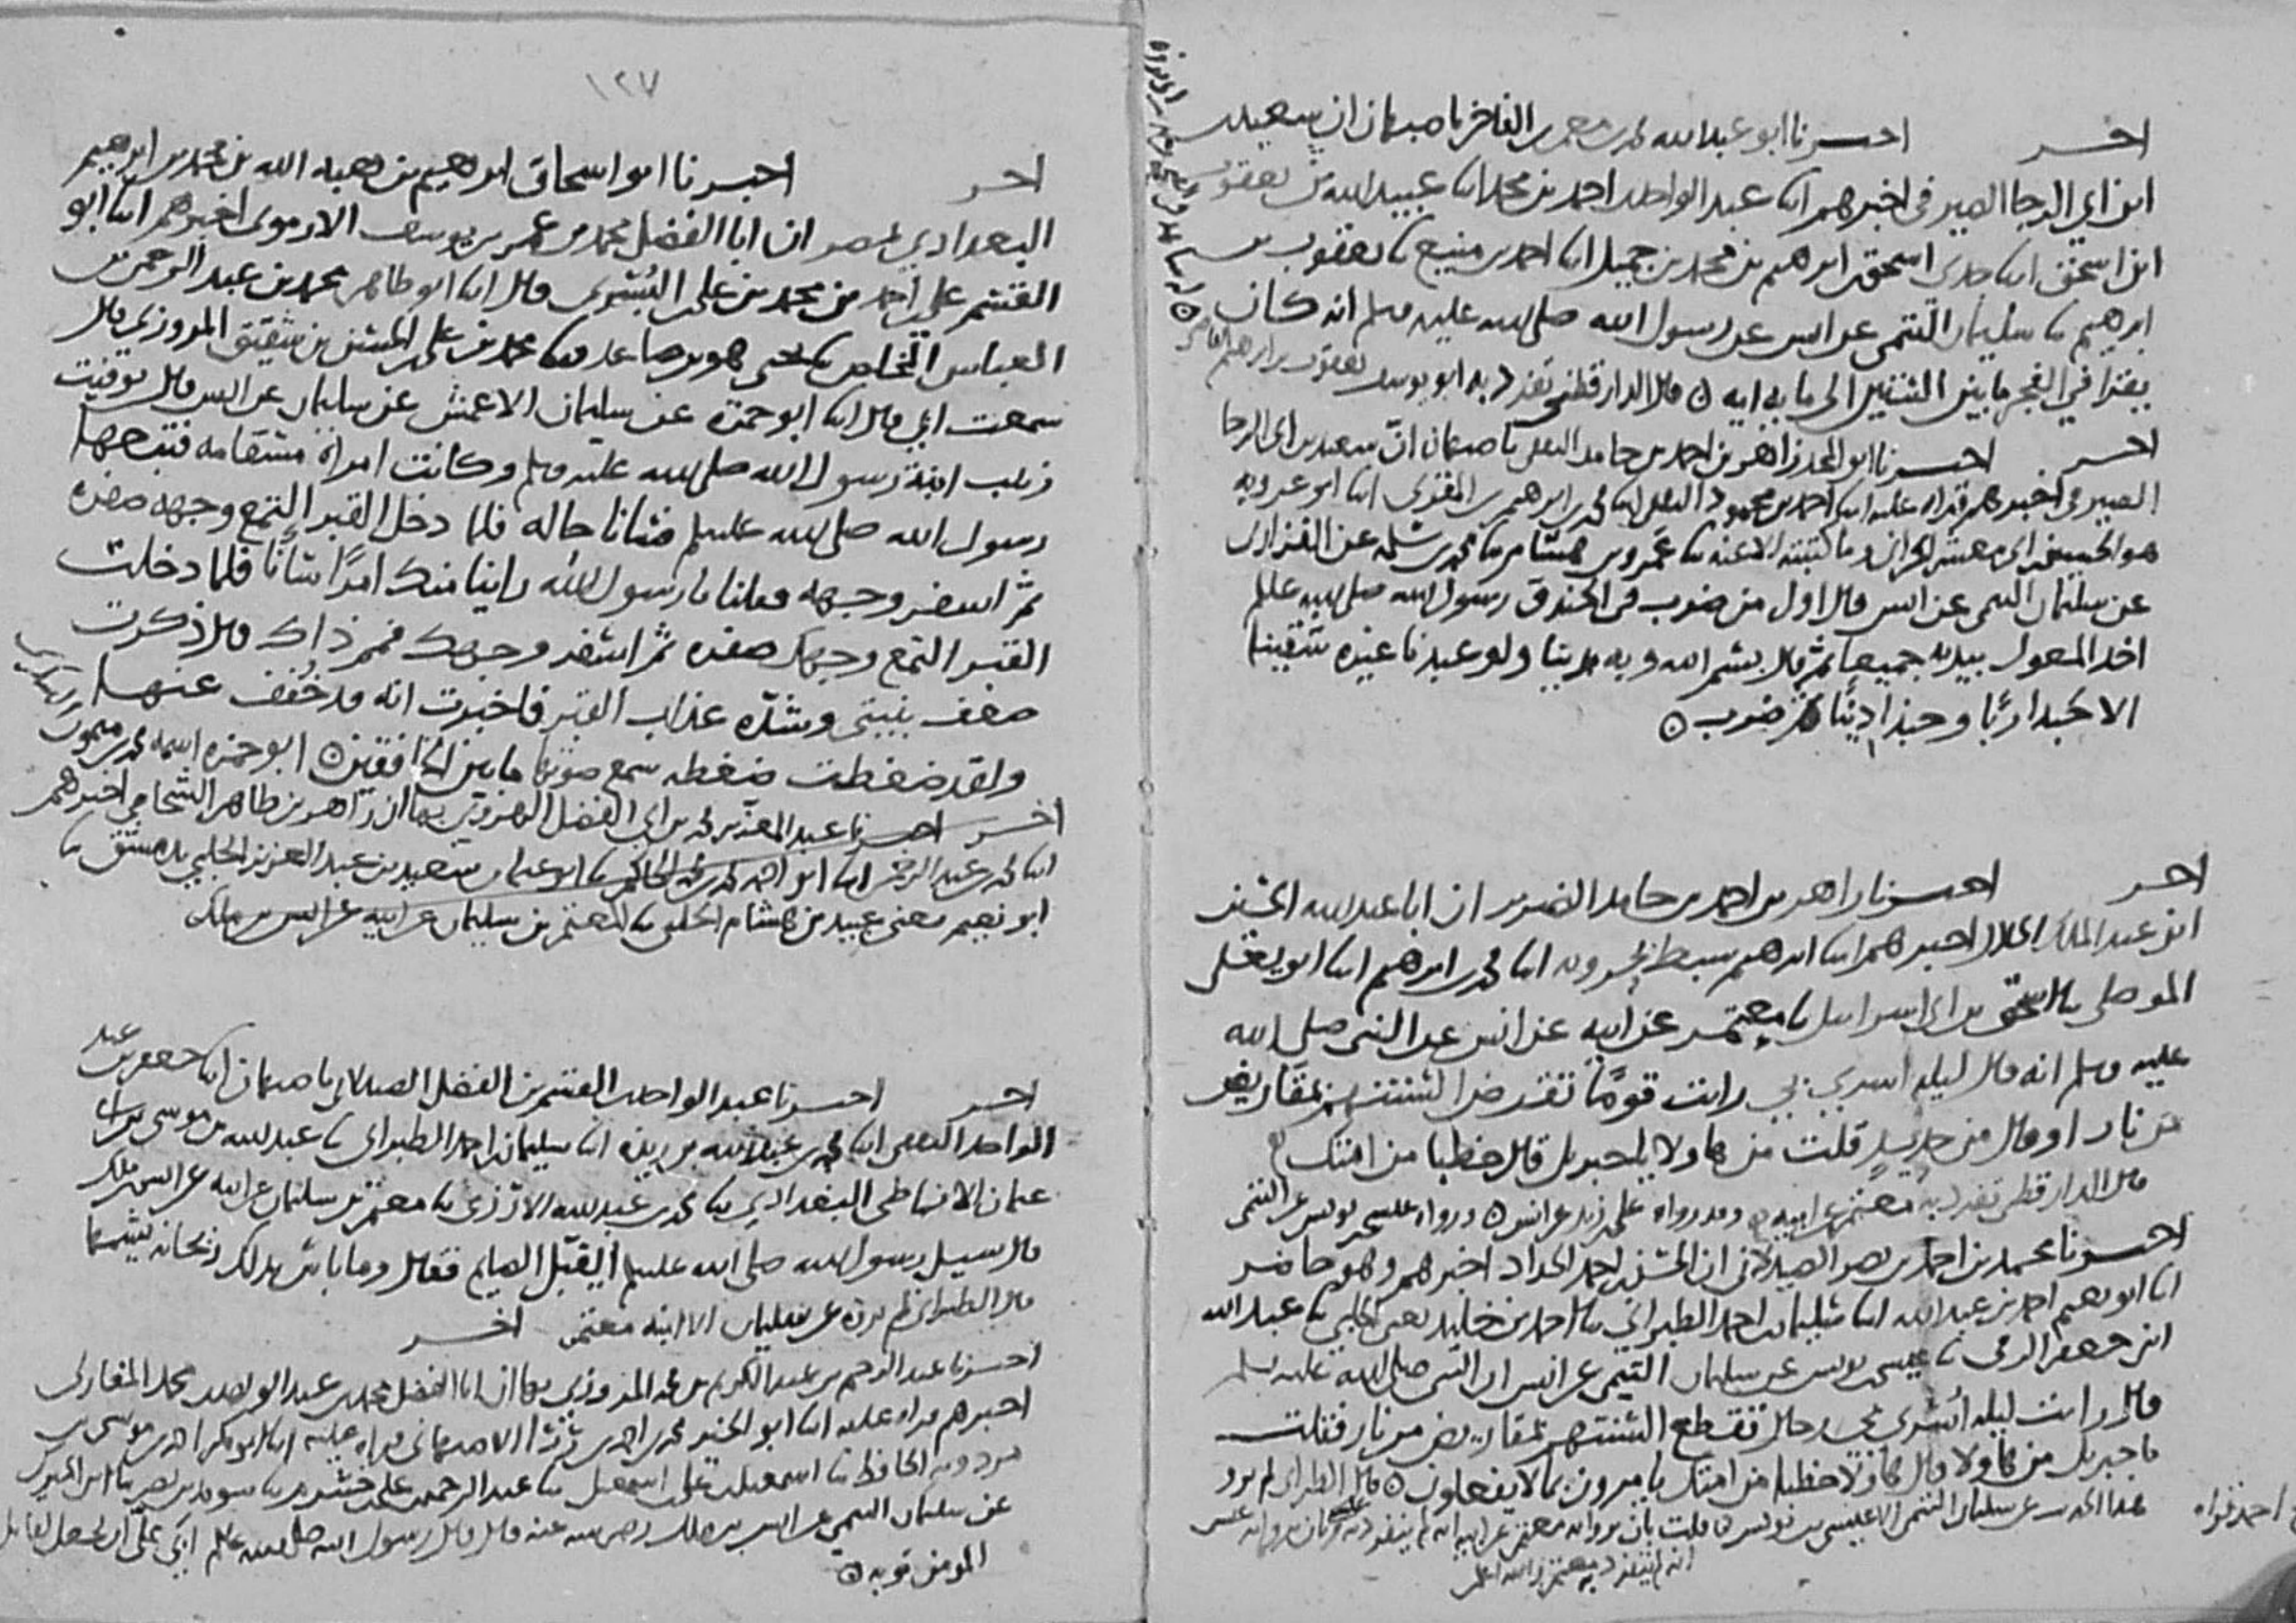 اخر اخبرنا ابو عبد الله محمد بن معمر بن الفاخر باصبهان ان سعيد
ابن ابي الرجا الصيرفي اخبرهم ابنا عبد الواحد احمد بن محمد ابنا عبيد الله بن يعقوب
ابن اسحق ابنا جدي اسحق بن ابرهيم بن محمد بن جميل ابنا احمد بن منيع ثنا يعقوب بن
ابرهيم ثنا سليمان التيمي عن انس عن رسول الله صلى الله عليه وسلم انه كان
يقرا في الفجر ما بين الستين الى مايه ايه ۝ قال الدارقطني تفرد به ابو يوسف يعقوب بن ابرهيم القاضي
اخر اخبرنا ابو المجد زاهر بن احمد بن حامد الثقفي باصبهان ان سعيد بن ابي الرجا
الصيرفي اخبرهم قراه عليه ابنا احمد بن محمود الثقفي ابنا محمد بن ابرهيم بن المقرئ ابنا ابو عروبه
هو الحسين بن ابي معشر الحراني وما كتبته الا عنه ثنا عمرو بن هشام ثنا محمد بن سلمه عن الفزاري
عن سليمان التيمي عن انس قال اول من ضرب في الخندق رسول الله صلى الله عليه وسلم
اخذ المعول بيديه جميعا ثم قال بسم الله وبه بدينا ولو عبدنا غيره شقينا
الا حبذا ربا وحبذا دينا ثم ضرب ۝
اخر اخبرنا زاهر بن احمد بن حامد الضرير ان ابا عبد الله الحسين
ابن عبد الملك الخلال اخبرهم ابنا ابرهيم سبط بحرويه ابنا محمد بن ابرهيم ابنا ابو يعلى
الموصلي ثنا اسحق بن ابي اسرايل ثنا معتمر عن ابيه عن انس عن النبي صلى الله
عليه وسلم انه قال ليله اسري بي رايت قوما تقرض السنتهم بمقاريض
من نار او قال من حديد قلت من هاولا يا جبريل قال خطبا من امتك
قال الدارقطني تفرد به معتمر عن ابيه ۝ وقد رواه علي بن زيد عن انس ۝ ورواه عيسى بن يونس عن التيمي
اخبرنا محمد بن احمد بن نصر الصيدلاني ان الحسن بن احمد الحداد اخبرهم وهو حاضر
ابنا ابو نعيم احمد بن عبد الله ابنا سليمان بن احمد الطبراني ثنا احمد بن خليد يعني الحلبي ثنا عبد الله
ابن جعفر الرقي ثنا عيسى بن يونس عن سليمان التيمي عن انس ان النبي صلى الله عليه وسلم
قال رايت ليله اسري بي رجالا تقطع السنتهم بمقاريض من نار فقلت
يا جبريل من هاولا قال هاولا خطبا من امتك يامرون بما لا يفعلون ۝ قال الطبراني لم يرو
هذا الحديث عن سليمان التيمي الا عيسى بن يونس ۝ قلت بان بروايه معتمر عن ابيه انه لم ينفرد به عيسى وبان بروايه عيسى
انه لم ينفرد به معتمر والله اعلم
١٢٧
اخر اخبرنا ابو اسحاق ابرهيم بن هبه الله بن محمد بن ابرهيم
البغدادي بمصر ان ابا الفضل محمد بن عمر بن يوسف الارموي اخبرهم ابنا ابو
القسم علي بن احمد بن محمد بن علي البسري قال ابنا ابو طاهر محمد بن عبد الرحمن بن
العباس المخلص ثنا يحيى هو بن صاعد ثنا محمد بن علي بن الحسن بن شقيق المروزي قال
سمعت ابي قال ابنا ابو حمزه عن سليمان الاعمش عن سليمان عن انس قال توفيت
زينب ابنة رسول الله صلى الله عليه وسلم وكانت امراة مسقامه فتبعها
رسول الله صلى الله عليه وسلم فسانا حاله فلما دخل القبر التمع وجهه صفره
ثم اسفر وجهه فقلنا يا رسول الله راينا منك امرا ساءنا فلما دخلت
القبر التمع وجهك صفره ثم اسفر وجهك فمم ذاك قال ذكرت
ضعف بنيتي وشده عذاب القبر فاخبرت انه قد خفف عنها
ولقد ضغطت ضغطه سمع صوتها ما بين الخافقين ۝ ابو حمزه اسمه محمد بن ميمون السكري
اخر اخبرنا عبد المعز بن محمد بن ابي الفضل الهروي بها ان زاهر بن طاهر الشحامي اخبرهم
ابنا محمد بن عبد الرحمن ابنا ابو احمد محمد بن محمد الحاكم ثنا ابو عثمان سعيد بن عبد العزيز الحلبي بدمشق ثنا
ابو نعيم يعني عبيد بن هشام الحلبي ثنا المعتمر بن سليمان عن ابيه عن انس بن ملك
اخر اخبرنا عبد الواحد بن القسم بن الفضل الصيدلاني باصبهان ابنا جعفر بن عبد
الواحد الثقفي ابنا محمد بن عبد الله بن ريذه ابنا سليمان بن احمد الطبراني ثنا عبد الله بن موسى بن ابي
عثمان الانماطي البغدادي ثنا محمد بن عبد الله الارزي ثنا معتمر بن سليمان عن ابيه عن انس بن ملك
قال سيل رسول الله صلى الله عليه وسلم ايقبل الصايم فقال وما باس بذلك ريحانه يشمها
قال الطبراني لم يروه عن سليمان الا ابنه معتمر اخر
اخبرنا عبد الرحيم بن عبد الكريم بن محمد المروزي بها ان ابا الفضل محمد بن عبد الواحد بن محمد المغازلي
اخبرهم قراه عليه ابنا ابو الخير محمد بن احمد بن ررا الاصبهاني قراه عليه ابنا ابو بكر احمد بن موسى بن
مردويه الحافظ ثنا اسمعيل بن علي بن اسمعيل ثنا عبد الرحمن بن علي بن خشرم ثنا سويد بن نصر ثنا ابن المبارك
عن سليمان التيمي عن انس بن ملك رضي الله عنه قال قال رسول الله صلى الله عليه وسلم ابى علي ان يجعل لقاتل
المومن توبه ۝